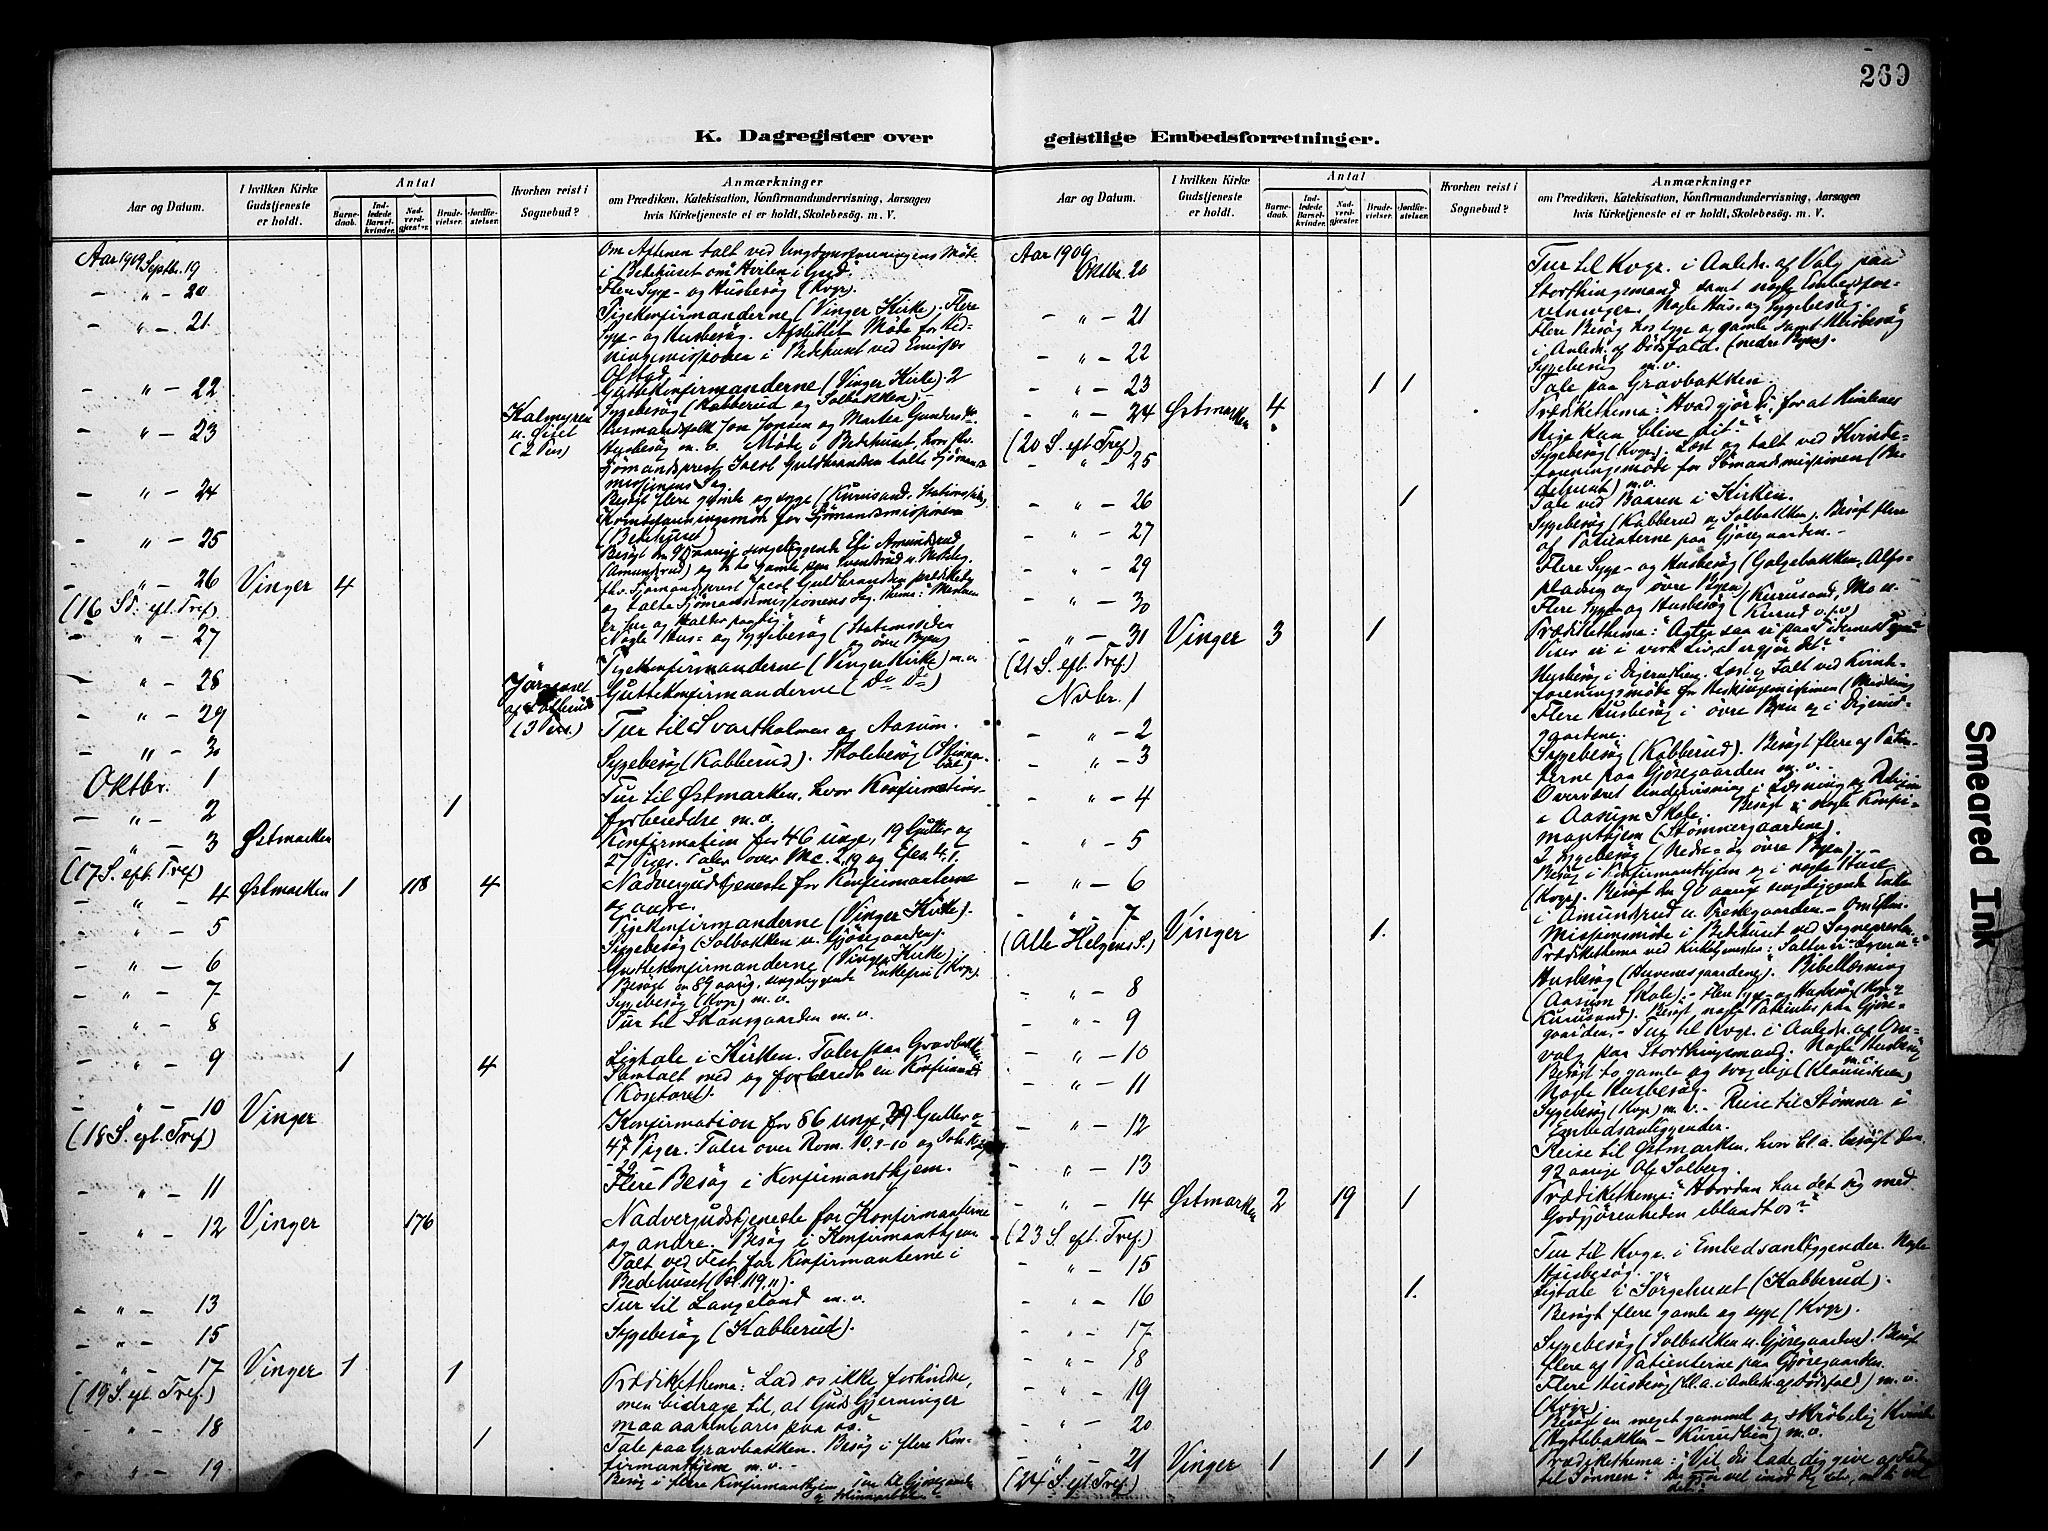 269
K. Dagregister over geistlige Embedsforretninger.
Aar og Datum.
I hvilken Kirke Gudstjeneste er holdt.
Antal
Barnedaab.
Indledede Barselkvinder.
Nadverdgjester.
Brudevielser.
Jordfæstelser.
Hvorhen reist i Sognebud?
Anmærkninger
om Prædiken, Katekisation, Konfirmandundervisning, Aarsagen
hvis Kirketjeneste ei er holdt, Skolebesøg m. V.
Aar 1909 Septbr. 19 Om Aftenen talt ved Ungdomsforeningens Møde
i Bedehuset om "Hvilen i Gud".
- " - 20 Flere Syge- og Husbesøg (Kvgr).
- " - 21 Pigekonfirmanderne (Vinger Kirke). Flere
Syge- og Husbesøg. Afsluttet Møde for Hed-
ningemissionen i Bedehuset ved Emissær
- " - 22 Guttekonfirmanderne (Vinger Kirke). 2
Sygebesøg (Kabberud og Solbakken).
- " - 23 (2 Pers) Husmandsfolk Jon Jonsen og Marthea
Husbesøg m. v. Møde i Bedehuset, hvor fhv.
Sjømandsprest Jacob Guldbrandsen talte Sjømands-
missionens Sag.
- " - 24 Besøgt flere gamle og syge (Kurusand, Stationssiden)
Kvindeforeningsmøde for Sjømandsmissionen
(Bedehuset)
- " - 25 Besøgt den 90 aarige sengeliggende Amundsrud
(Amundsrud) og to gamle
- " - 26 Vinger 4 fhv. Sjømandsprest Jacob Guldbrandsen prædikede
(16 S. eft. Tref.) og talte Sjømandsmissionens Sag. Thema: "Mesteren
er her og kalder paa dig"
- " - 27 Nogle Hus- og Sygebesøg (Stationssiden
og øvre Byen)
Pigekonfirmanderne (Vinger Kirke) m. v.
- " - 28 Guttekonfirmanderne (Do Do)
- " - 29 (3 Pers.) Tur til Svartholmen og Aasum.
- " - 30 Sygebesøg (Kabberud). Skolebesøg
Oktbr. 1 Tur til Østmarken, hvor Konfirmations-
- " - 2 1 forberedelse m. v.
- " - 3 Østmarken Konfirmation for 46 unge, 19 Gutter og
(17 S. eft. Tref) 27 Piger. Taler over Mc. 2,19 og Efes. 4,1.
- " - 4 Østmarken 1 118 4 Nadvergudstjeneste for Konfirmanterne
og andre.
- " - 5 Pigekonfirmanderne (Vinger Kirke).
Sygebesøg (Solbakken u. Gjøsegaarden).
- " - 6 Guttekonfirmanderne (Vinger Kirke)
Besøgt en 89 aarig, sengeliggende Enkefru (Kvgr).
- " - 7 Sygebesøg (Kvgr) m. v.
- " - 8 Tur til Skansgaarden m. v.
- " - 9 1 4 Ligtale i Kirken. Taler paa Gravbakken
Samtalt med og forberedt en Konfirmand
- " - 10 Vinger Konfirmation for 86 unge, 39 Gutter og
(18 S. eft. Tref) 47 Piger. Taler over Rom. 10,9-10 og
- " - 11 Flere Besøg i Konfirmanthjem.
- " - 12 Vinger 176 Nadvergudstjeneste for Konfirmanterne
og andre. Besøg i Konfirmanthjem
Talt ved Fest for Konfirmanterne i
Bedehuset (Psl. 119,11).
- " - 13 Tur til Langeland m. v.
- " - 15 Sygebesøg (Kabberud).
- " - 17 Vinger 1 1 Prædikethema: "Lad os ikke forhindre,
(19 S. eft. Tref.) men bidrage til, at Guds Gjerninger
maa aabenbares paa os".
- " - 18 1 Tale paa Gravbakken. Besøg i flere Kon-
firmanthjem m. v.
- " - 19 Besøg i flere Konfirmanthjem
Aar og Datum.
I hvilken Kirke Gudstjeneste er holdt.
Antal
Barnedaab.
Indledede Barselkvinder.
Nadverdgjester.
Brudevielser.
Jordfæstelser.
Hvorhen reist i Sognebud?
Anmærkninger
om Prædiken, Katekisation, Konfirmandundervisning, Aarsagen
hvis Kirketjeneste ei er holdt, Skolebesøg m. V.
Aar 1909
Oktbr. 20 Tur til Kvgr. i Anledn. af Valg paa
Storthingsmand samt nogle Embedsfor-
retninger. Nogle Hus- og Sygebesøg.
- " - 21 Flere Besøg hos syge og gamle samt Husbesøg
i Anledn. af Dødsfald. (nedre Byen).
- " - 22 Sygebesøg m. v.
- " - 23 1 1 Tale paa Gravbakken
- " - 24 Østmarken 4 Prædikethema: "Hvad gjør du, for at Himlenes
(20 S. eft. Tref) Rige kan blive dit?"
- " - 25 Sygebesøg (Kvgr). Læst og talt ved Kvinde-
foreningsmøde for Sømandsmissionen (Be-
dehuset) m. v.
- " - 26 1 Tale ved Baaren i Kirken.
- " - 27 Sygebesøg (Kabberud og Solbakken). Besøgt flere
af Patienterne paa Gjøsegaarden.
- " - 29 Flere Syge- og Husbesøg (Galgebakken,
og øvre Byen)
- " - 30 Flere Syge- og Husbesøg (Kurusand, Mo u.
Kurud o.s.v)
- " - 31 Vinger 3 1 Prædikethema: "Agter saa vi paa Tidernes Tegn"
(21 S. eft. Tref.) Viser vi i vort Liv, at vi gjør det?
Novbr. 1 Husbesøg i Digerudlien. Læst og talt ved Kvinde-
foreningsmøde for Hedningemissionen
- " - 2 Flere Husbesøg i øvre Byen og i Digerud-
gaardene.
- " - 3 Sygebesøg (Kabberud). Besøgt flere af Patien-
terne paa Gjøsegaarden m. v.
- " - 4 Overværet Undervisning i Læsning og Religion
i Aasum Skole. Besøgt i nogle Konfir-
manthjem (Stømnergaardene).
- " - 5 2 Sygebesøg (Nedre- og øvre Byen).
- " - 6 Besøg i Konfirmanthjem og i nogle Huse
(Kvgr). Besøgt den 90 aarige sengeliggende Enke
i Amundsrud u. Prestegaarden. - Om Eftm.
- " - 7 Vinger 1. Missionsmøde i Bedehuset ved Sognepresten.
(Alle Helgens S.) Prædikethema ved Kirketjenesten:
- " - 8 Husbesøg (Huvenesgaardene). Bibellæsning
(Aasum Skole). - Flere Syge- og Husbesøg (Kvgr og
- " - 9 Kurusand). Besøgt nogle Patienter paa Gjøse-
gaarden. - Tur til Kvgr. i Anledn. af Om-
- " - 10 valg paa Storthingsmand. Nogle Husbesøg m. v.
- " - 11 Besøgt to gamle og svagelige
Nogle Husbesøg.
- " - 12 Sygebesøg (Kvgr) m. v. - Reise til Stømner i
Embedsanliggender.
- " - 13 Reise til Østmarken, hvor bl. a. besøgt den
92 aarige Ole Solberg.
- " - 14 Østmarken 2 19 1 Prædikethema: "Hvordan har det sig med
(23 S. eft. Tref.) Gudgjørenheden iblandt os?"
- " - 15 Tur til Kvgr. i Embedsanliggender. Nogle
Husbesøg.
- " - 16 1. Ligtale i Sørgehuset (Kabberud).
- " - 17 Besøgt flere gamle og syge (Kvgr).
- " - 18 Sygebesøg (Solbakken u. Gjøsegaarden). Besøgt
flere af Patienterne paa Gjøsegaarden.
- " - 19 Flere Husbesøg (bl. a. i Anledn. af Dødsfald) m. v.
(Kvgr).
- " - 20 Besøgt en meget gammel og skrøbelig Kvinde
(Hyttebakken - Kurudlien) m. v.
- " - 21 Vinger 1 1 1 Prædikethema: "Vil du lade dig give af Faderen
(24 S. eft. Tref.) til Sønnen?"
Smeared Ink